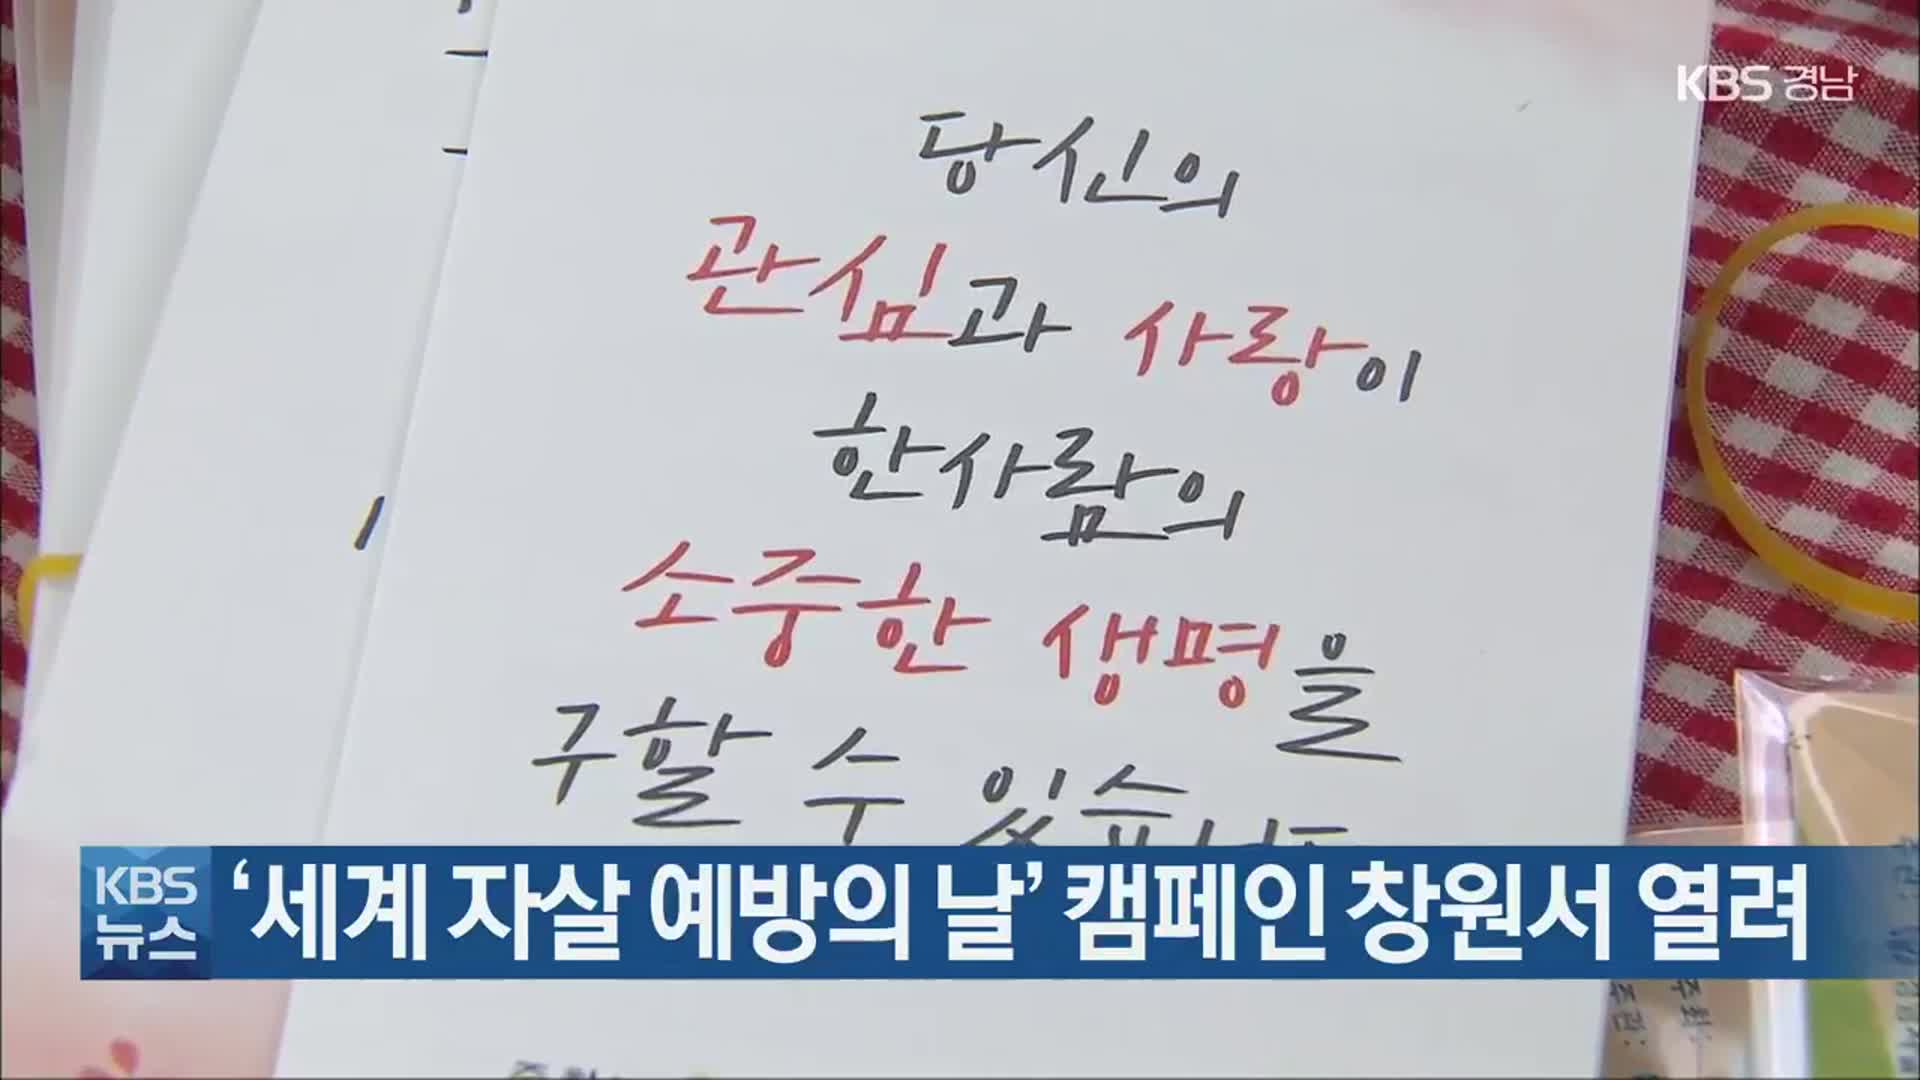 KBS 경남
당신의
관심과 사랑이
한사람의
소중한 생명을
구할 수 있습니다
KBS 뉴스
‘세계 자살 예방의 날’ 캠페인 창원서 열려